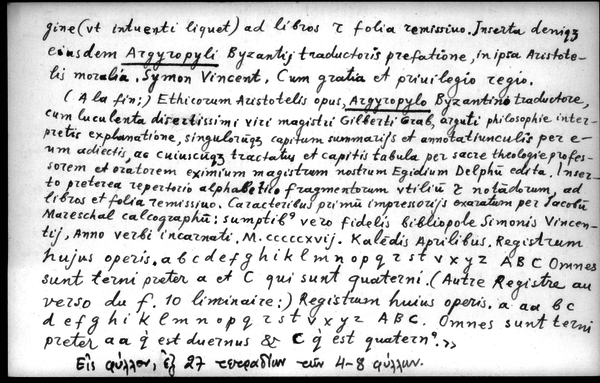 gine (vt intuenti liquet) ad libros ⁊ folia remissiuo. Inserta deniqꝫ
eiusdem Argyropyli Byzantij traductoris prefatione, in ipsa Aristote-
lis moralia. Symon Vincent. Cum gratia et priuilegio regio.
(A la fin:) Ethicorum Aristotelis opus, Argyropylo Byzantino traductore,
cum luculenta disertissimi viri magistri Gilberti Grab, arguti philosophie inter-
pretis explanatione, singulorūqꝫ capitum summarijs et annotatiunculis per e-
um adiectis, ac cuiuscūqꝫ tractatus et capitis tabula per sacre theologie profes-
sorem et oratorem eximium magistrum nostrum Egidium Delphū edita. Inser-
to preterea repertorio alphabetico fragmentorum vtiliū ⁊ notādorum, ad
libros et folia remissiuo. Caracteribus primū impressorijs exaratum per Jacobū
Mareschal calcographū: sumptibꝰ vero fidelis bibliopole Simonis Vincen-
tij, Anno verbi incarnati. M.cccccxvij. Kalēdis Aprilibus. Registrum
hujus operis. a b c d e f g h i k l m n o p q r s t v x y z A B C Omnes
sunt terni preter a et C qui sunt quaterni. (Autre Registre au
verso du f. 10 liminaire:) Registrum huius operis. a aa b c
d e f g h i k l m n o p q r s t v x y z A B C. Omnes sunt terni
preter aa q̇ est duernus & C q̇ est quaternꝰ.»
Εἰς φύλλον, ἐξ 27 τετραδίων τῶν 4-8 φύλλων.